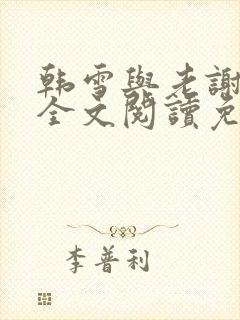 韩雪與老謝
全文閱讀免
李普利